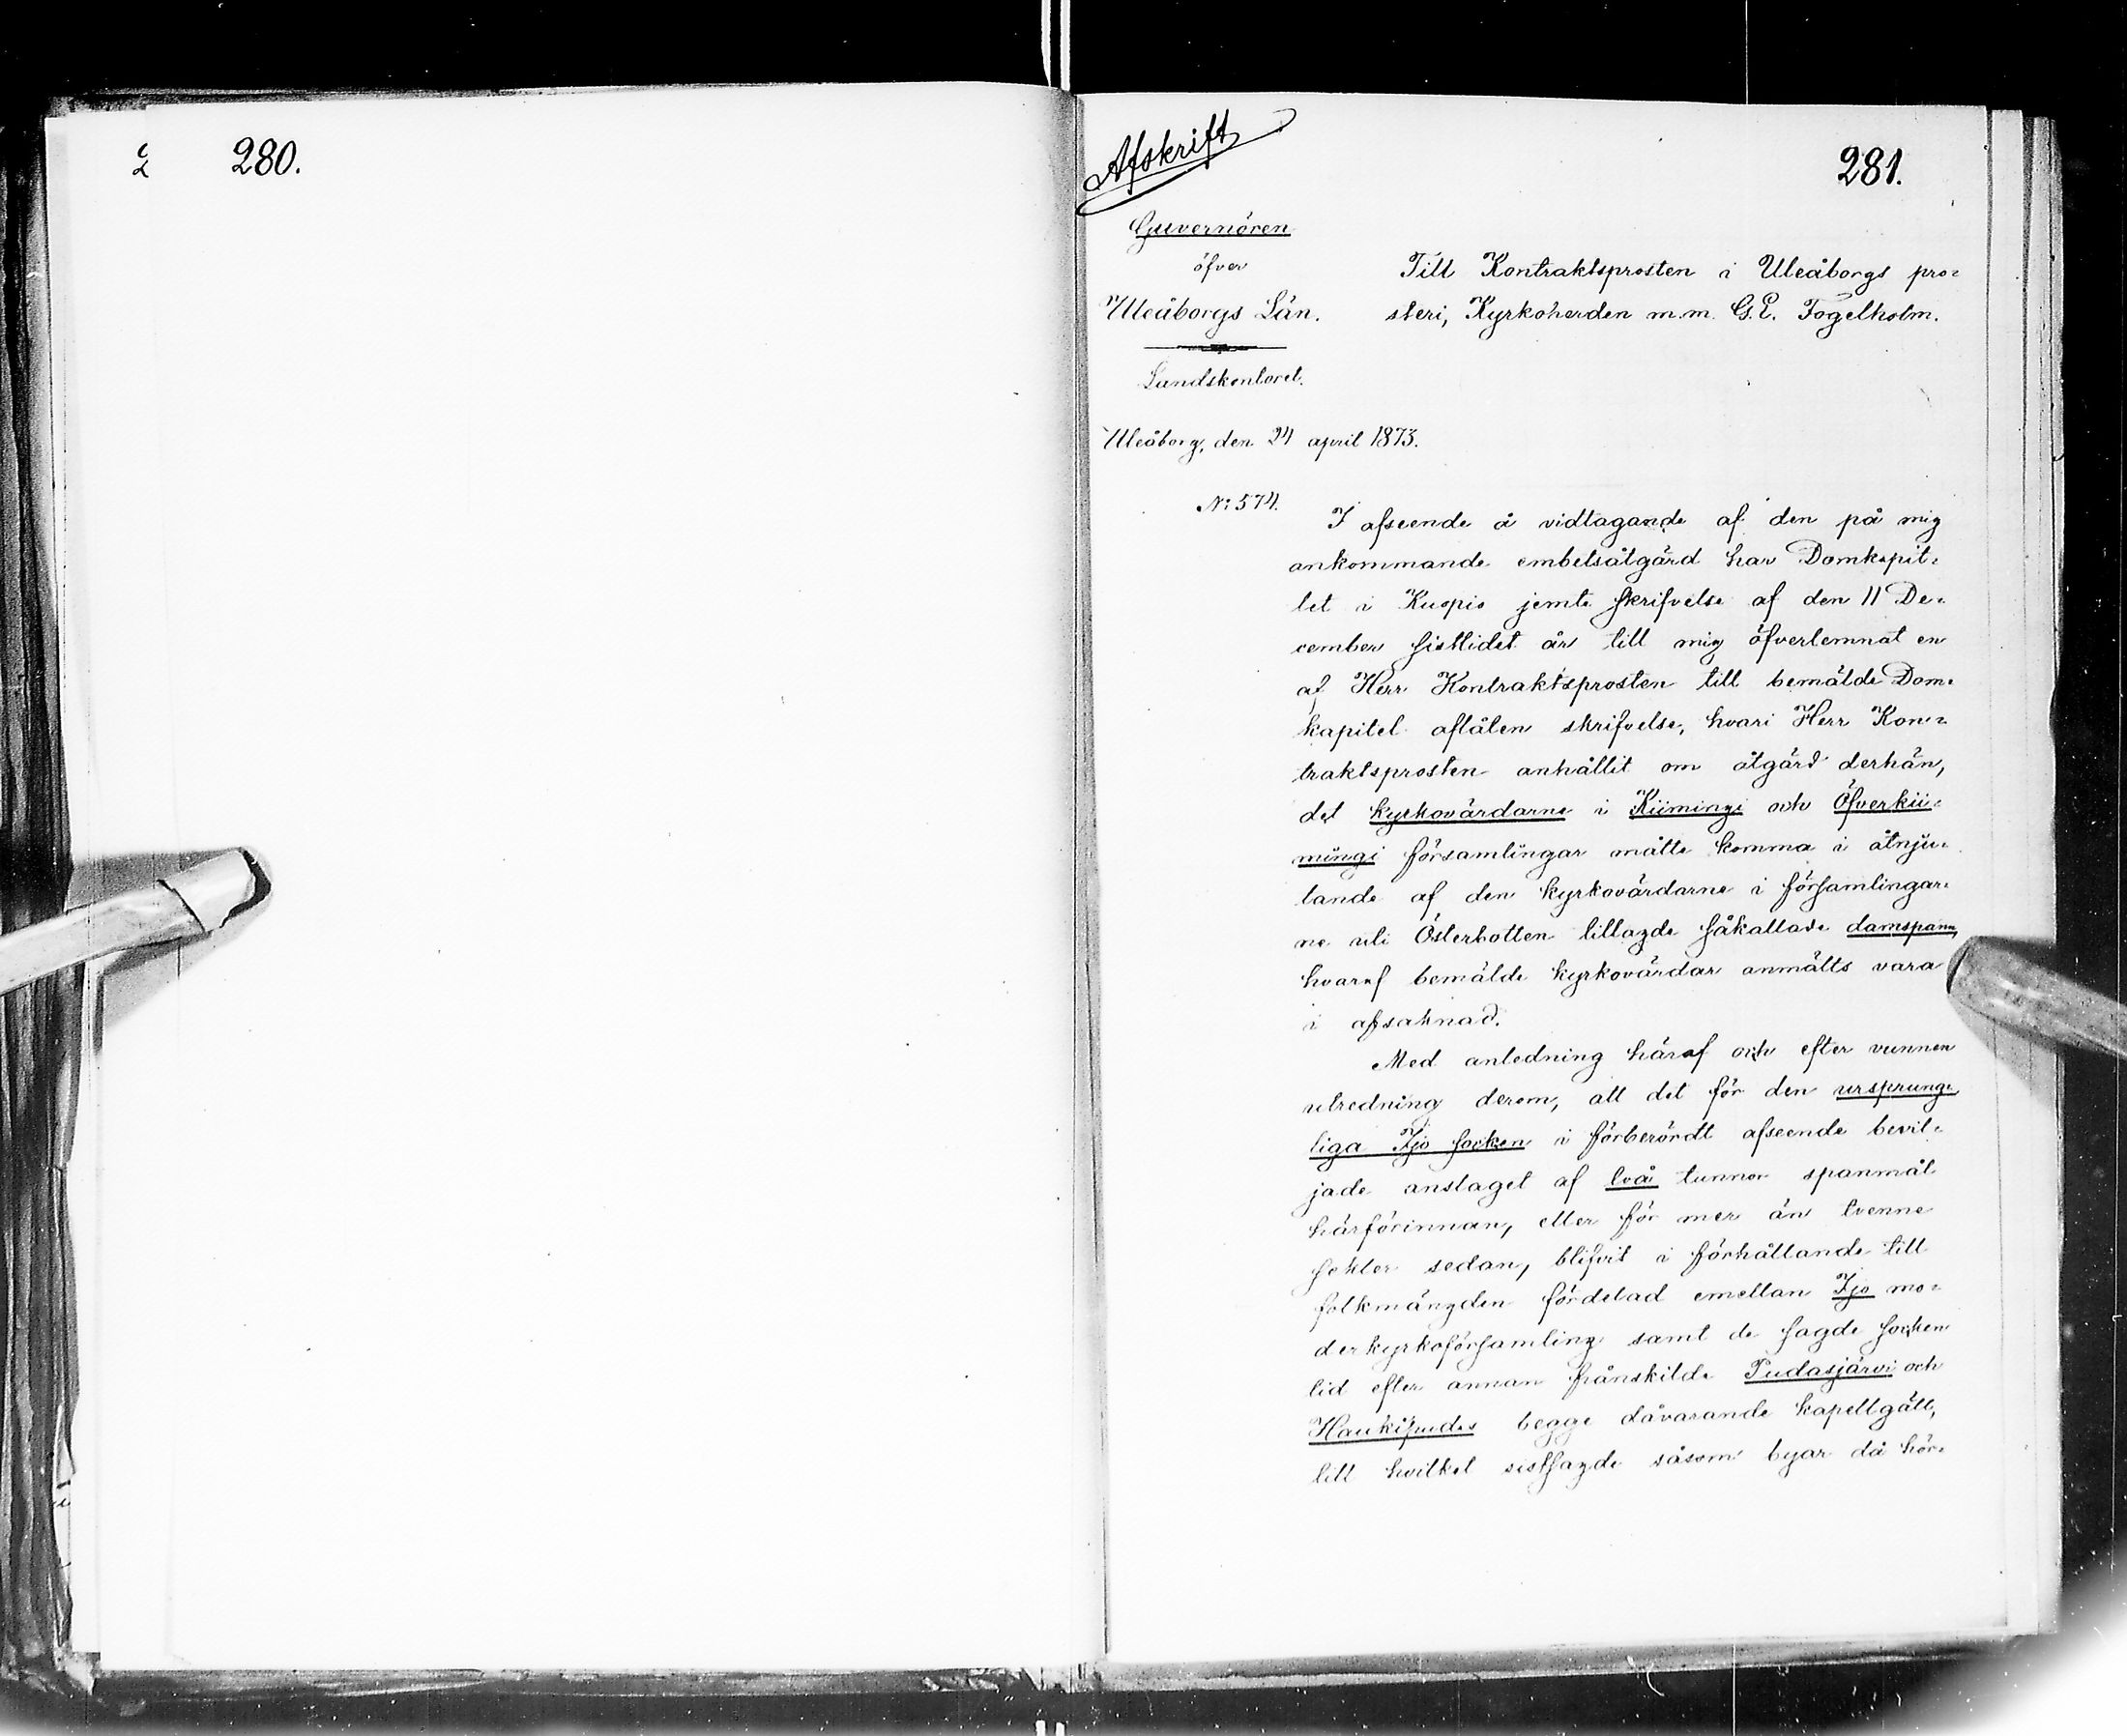 280.
Afskrift
281.
Guvernören
öfver
Uleåborgs Län.
Landskontoret.
Uleåborg, den 24 april 1873.
No 574.
Till Kontraktsprosten i Uleåborgs pro-
steri, Kyrkoherden m.m. G.E. Fogelholm.
I afseende å vidtagande af den på mig
ankommande embetsåtgärd har Domkapit-
let i Kuopio jemte skrifvelse af den 11 De-
cember sistlidet år till mig öfverlemnat en
af Herr Kontraktsprosten till bemälde Dom-
kapitel aflåten skrifvelse, hvari Herr Kon-
traktsprosten anhållit om åtgärd derhän,
det kyrkovärdarne i Kiimingi och Öfverkii-
mingi församlingar måtte komma i åtnju-
tande af den kyrkovärdarne i församlingar-
ne uti Österbotten tillagde såkallade damspann,
hvaraf bemälde kyrkovärdar anmälts vara
i afsaknad.
Med anledning häraf och efter vunnen
utredning derom, att det för den ursprung-
liga Ijo socken i förberördt afseende bevil-
jade anslaget af två tunnor spanmål
härförinnan, eller för mer än tvenne
sekler sedan, blifvit i förhållande till
folkmängden fördelad emellan Ijo mo-
derkyrkoförsamling samt de sagde socken
tid efter annan frånskilde Pudasjärvi och
Haukipudas begge dåvarande kapellgäll,
till hvilket sistsagde såsom byar då hör-